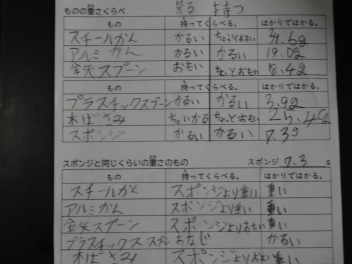 ものの重さくらべ 見る 持つ
もの 持ってくらべる。 はかりではかる。
スチールかん かるい ちょっとおもい
アルミかん かるい かるい 19.0g
金ぞくスプーン おもい ちょっとおもい 18.4g
プラスチックスプーン かるい かるい 3.9g
木ばさみ ちょいかる ちょっとおもい 25.4g
スポンジ かるい かるい 7.3g
スポンジと同じくらいの重さのもの スポンジ 7.3 g
もの 持ってくらべる。 はかりではかる。
スチールかん スポンジより重い 重い
アルミかん スポンジより重い 重い
金ぞくスプーン スポンジよりおもい 重い
プラスチックスプーン おなじ かるい
木ばさみ スポンジよりおもい 重い